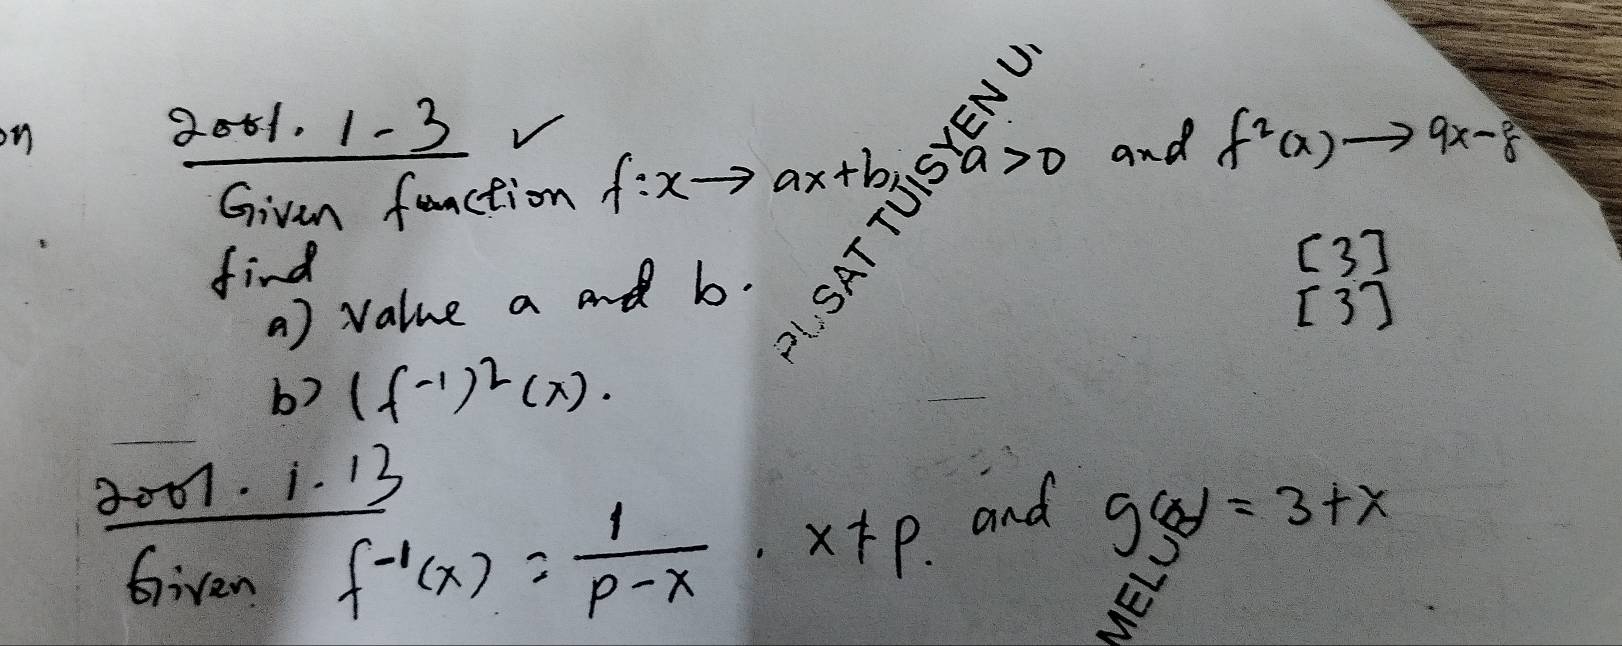 on
2001. 1-3 ✓
Given function f:x→ ax+b, a>0 and f²(x)→ 9x-8
find
a) value a and b. [3]
b) (f⁻¹)²(x). [3]
2001. 1. 13
Given f⁻¹(x) = 1/(p-x) . x≠p. and g(x) = 3+x
PUSAT TUISYEN
MELU